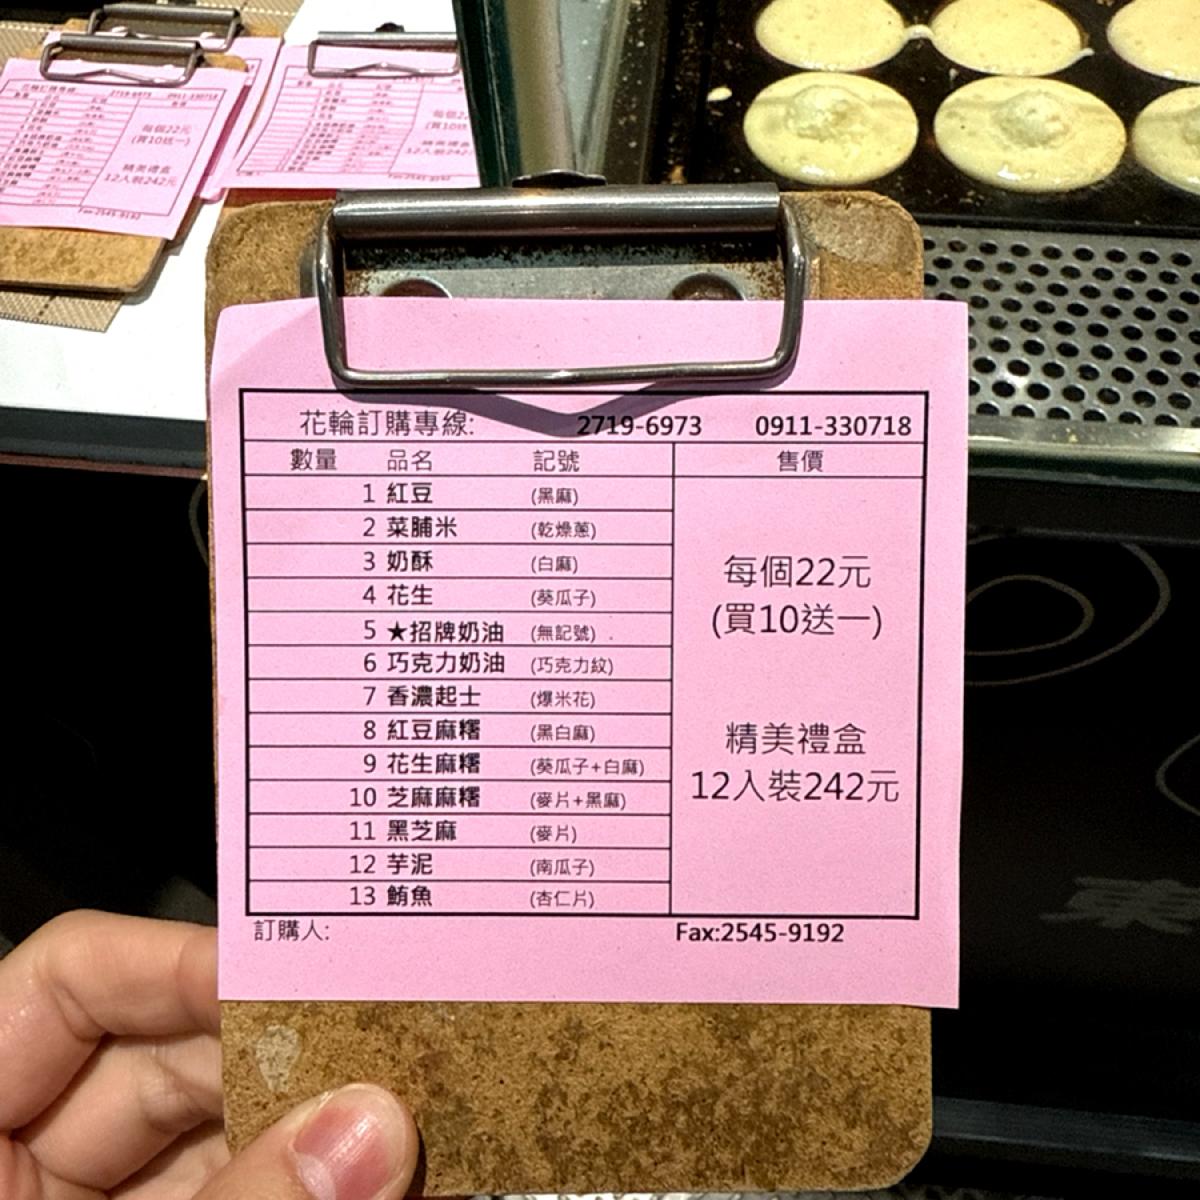 花輪訂購專線: 2719-6973 0911-330718
數量 品名 記號 售價
1 紅豆 (黑麻)
2 菜脯米 (乾燥蔥)
3 奶酥 (白麻)
4 花生 (葵瓜子)
5 ★招牌奶油 (無記號)
6 巧克力奶油 (巧克力紋)
7 香濃起士 (爆米花)
8 紅豆麻糬 (黑白麻)
9 花生麻糬 (葵瓜子+白麻)
10 芝麻麻糬 (麥片+黑麻)
11 黑芝麻 (麥片)
12 芋泥 (南瓜子)
13 鮪魚 (杏仁片)
每個22元
(買10送一)
精美禮盒
12入裝242元
訂購人: Fax:2545-9192
花輪訂購專線 2719-6973 0911-330718
每個22元
(買10送一)
精美禮盒
12入裝242元
Fax:2545-9192